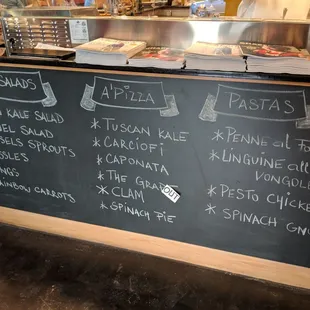 SALADS
KALE SALAD
EL SALAD
ELS SPROUTS
RAINBOW CARROTS
A'PIZZA
* TUSCAN KALE
* CARCIOFI
* CAPONATA
* THE GRA
OUT
* CLAM
* SPINACH PIE
PASTAS
* PENNE AL FO
* LINGUINE ALL
VONGOL
* PESTO CHICKE
* SPINACH GN